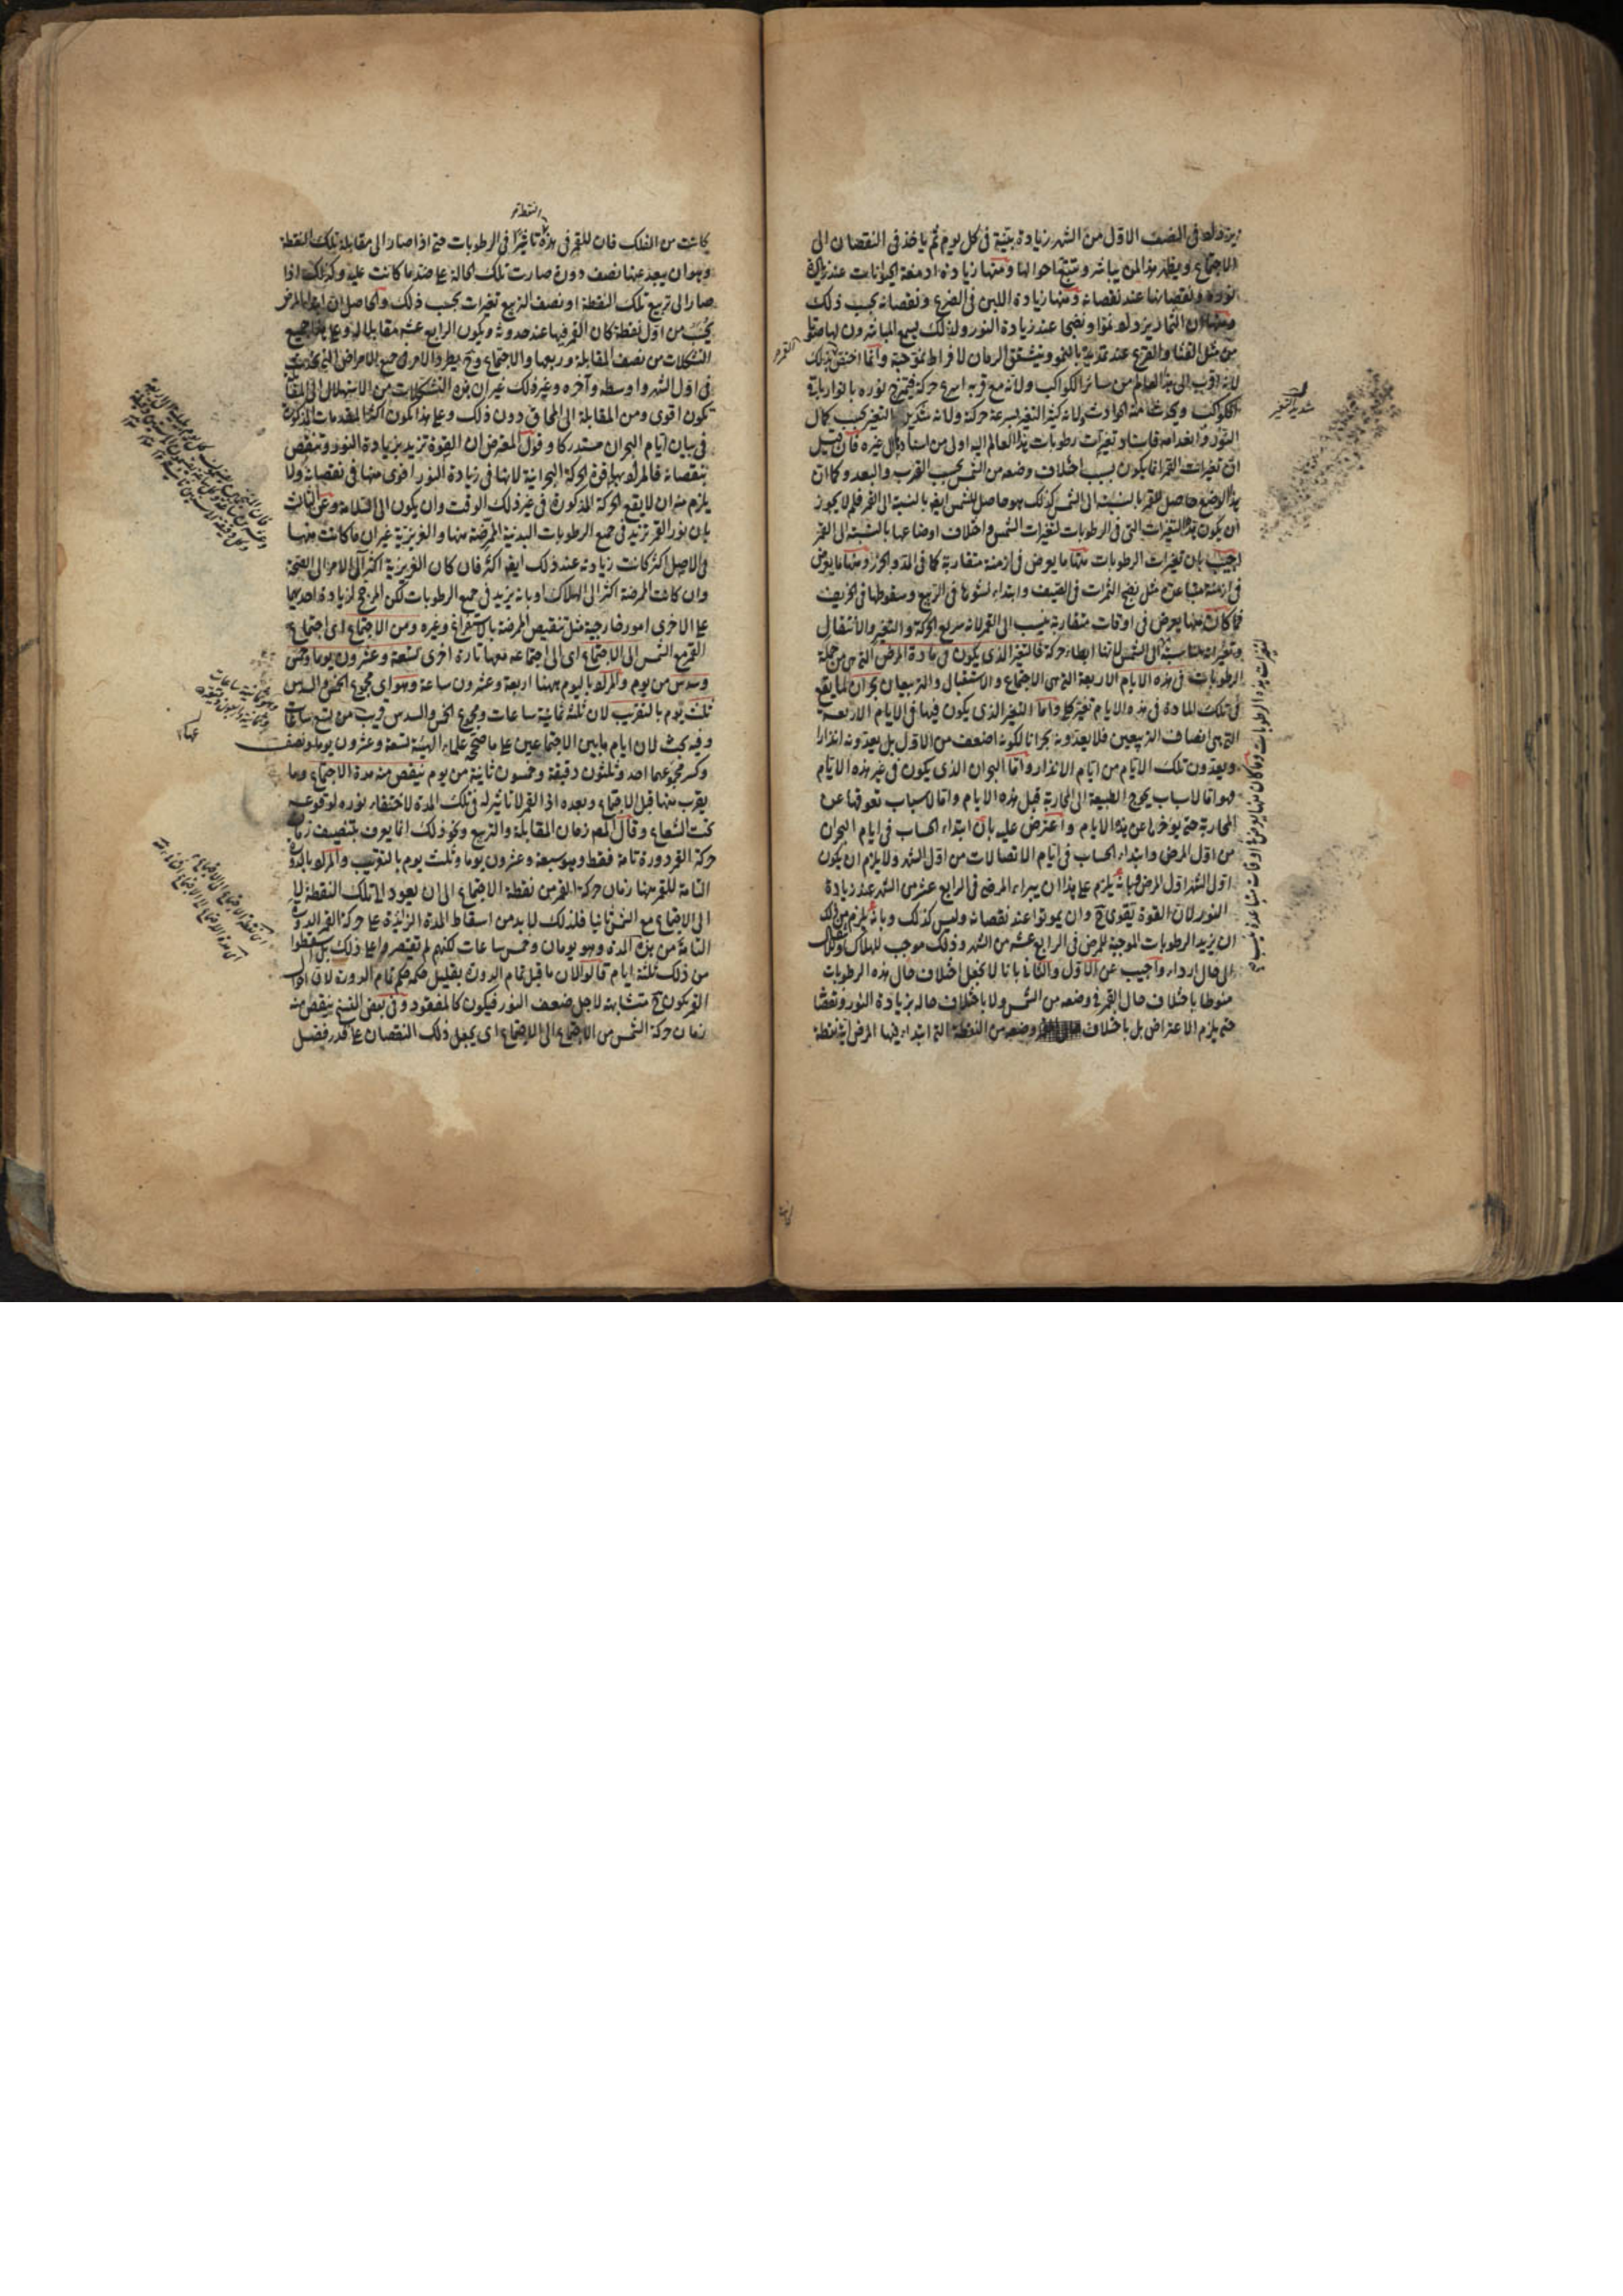 يزداد في النصف الاول من الشهر زيادة بينة في كل يوم ثم ياخذ في النقصان الى
الاجتماع ويظهر هذا لمن يباشره ويتتبع احوالها ومنها زيادة ادمغة الحيوانات عند زيادة
نوره ونقصانها عند نقصانه ومنها زيادة اللبن في الضرع ونقصانه بحسب ذلك
ومنها ان الثمار يزداد نموا ونضجا عند زيادة النور ولذلك يسمع المباشرون لها صوتا
من مثل القثا والقرع عند تمدده بالنمو ويتشقق الرمان لافراط نموه حبه وانما اختص بذلك القمر
لانه اقرب الى هذا العالم من سائر الكواكب ولانه مع قربه اسرع حركة فيمتزج نوره بانوار باقي
الكواكب ويحدث منه الحوادث ولانه كثير التغير لسرعة حركته ولانه شديد التغير بحسب كمال
النور وانعدامه فاسناد تغيرات رطوبات هذا العالم اليه اولى من اسنادها الى غيره فان قيل
ان تغيرات القمر انما يكون بسبب اختلاف وضعه من الشمس بحسب القرب والبعد وكما ان
هذا الوضع حاصل للقمر بالنسبة الى الشمس كذلك هو حاصل للشمس ايضا بالنسبة الى القمر فلم لا يجوز
ان يكون هذه التغيرات التي في الرطوبات لتغيرات الشمس واختلاف اوضاعها بالنسبة الى القمر
اجيب بان تغيرات الرطوبات منها ما يعرض في ازمنة متقاربة كما في المد والجزر ومنها ما يعرض
في ازمنة متباعدة مثل نضج الثمرات في الصيف وابتداء نشوها في الربيع وسقوطها في الخريف
فما كان منها يعرض في اوقات متقاربة ينسب الى القمر لانه سريع الحركة والتغير والانتقال
وتغيرات متناسبة الى الشمس لانها ابطاء حركة فالتغير الذي يكون في مادة المرض التي هي من جملة
الرطوبات في هذه الايام الاربعة التي هي الاجتماع والاستقبال والتربيعان بحران لما يقع
في تلك المادة في هذه الايام تغير كلي واما التغير الذي يكون فيها في الايام الاربعة
التي هي انصاف التربيعين فلا يعدونه بحرانا لكونه اضعف من الاول بل يعدونه انذارا
ويعدون تلك الايام من ايام الانذار واما البحران الذي يكون في غير هذه الايام
فهو اما لاسباب يحوج الطبيعة الى المحاربة قبل هذه الايام واما لاسباب تعوقها عن
المحاربة حتى يؤخرها عن هذه الايام واعترض عليه بان ابتداء الحساب في ايام البحران
من اول المرض وابتداء الحساب في ايام الاتصالات من اول الشهر ولا يلزم ان يكون
اول الشهر اول المرض وبانه يلزم على هذا ان يبراء المرضى في الرابع عشر من الشهر عند زيادة
النور لان القوة تقوى ح وان يموتوا عند نقصانه وليس كذلك وبانه يلزم من ذلك
ان يزيد الرطوبات الموجبة للمرض في الرابع عشر من الشهر وذلك موجب للهلاك
الى حال ارداء واجيب عن الاول والثاني بانا لا نجعل اختلاف حال هذه الرطوبات
منوطا باختلاف حال القمر في وضعه من الشمس ولا باختلاف حاله بزيادة النور ونقصانه
حتى يلزم الاعتراض بل باختلاف وضعه من النقطة التي ابتداء فيها المرض اية نقطة
شديد التغير
النقطة
كانت من الفلك فان للقمر في هذه تاثيرا في الرطوبات حتى اذا صار الى مقابلة تلك النقطة
وهو ان يبعد عنها نصف دورة صارت تلك الحالة على ضد ما كانت عليه وكذلك اذا
صار الى تربيع تلك النقطة او نصف التربيع تغيرات بحسب ذلك والحاصل ان ابتداء المرض
يحسب من اول نقطة كان القمر فيها عند حدوثه ويكون الرابع عشر مقابلا له وعلى هذا جميع
التشكلات من نصف المقابلة وربعها والاجتماع وح يطرد الامر في جميع الامراض التي يحدث
في اول الشهر واوسطه وآخره وغير ذلك غير ان هذه التشكلات من الاستهلال الى المقابلة
تكون اقوى ومن المقابلة الى المحاق دون ذلك وعلى هذا يكون اكثر المقدمات المذكورة
في بيان ايام البحران مستدركا وقول المعترض ان القوة تزيد بزيادة النور وتنقص
بنقصانه فالمراد بها قوة الحركة البحرانية لانها في زيادة النور اقوى منها في نقصانه ولا
يلزم منه ان لا يقع الحركة المذكورة في غير ذلك الوقت وان يكون الى السلامة وعن الثالث
بان نور القمر تزيد في جميع الرطوبات البدنية الممرضة منها والغريزية غير ان ما كانت منها
في الاصل اكثر كانت زيادته عند ذلك ايضا اكثر فان كان الغريزية اكثر آل الامر الى الصحة
وان كانت الممرضة اكثر الى الهلاك او بانه يزيد في جميع الرطوبات لكن المرجح لزيادة احديهما
على الاخرى امور خارجية مثل تنقيص الممرضة بالاستفراغ وغيره ومن الاجتماع اي اجتماع
القمر مع الشمس الى الاجتماع اي الى اجتماعه معها تارة اخرى تسعة وعشرون يوما وخمس
وسدس من يوم والمراد باليوم ههنا اربعة وعشرون ساعة وهو اي مجموع الخمس والسدس
ثلث يوم بالتقريب لان ثلثه ثمانية ساعات ومجموع الخمس والسدس قريب من تسع ساعات
وفيه بحث لان ايام ما بين الاجتماعين على ما صححه علماء الهيئة تسعة وعشرون يوما ونصف
وكسر مجموعهما احد وثلثون دقيقة وخمسون ثانية من يوم ينقص منه مدة الاجتماع وما
يقرب منها قبل الاجتماع وبعده اذ القمر لا تاثير له في تلك المدة لاختفاء نوره لوقوعه
تحت الشعاع وقال المص زمان المقابلة والتربيع ونحو ذلك انما يعرف بتنصيف زمان
حركة القمر دورة تامة فقط وهو سبعة وعشرون يوما وثلث يوم بالتقريب والمراد بالدورة
التامة للقمر ههنا زمان حركة القمر من نقطة الاجتماع الى ان يعود الى تلك النقطة لا
الى الاجتماع مع الشمس ثانيا فلذلك لا بد من اسقاط المدة الزايدة على حركة القمر الدورة
التامة من هذه المدة وهو يومان وخمس ساعات لكنهم لم يقتصروا على ذلك بل اسقطوا
من ذلك ثلثة ايام قالوا لان ما قبل تمام الدورة بقليل حكمه حكم تمام الدورة لان احوال
القمر يكون ح متشابهة لاجل ضعف النور فيكون كالمفقود وفي بعض النسخ ينقص منه
زمان حركة الشمس من الاجتماع الى الاجتماع اي يجعل ذلك النقصان على قدر فضل